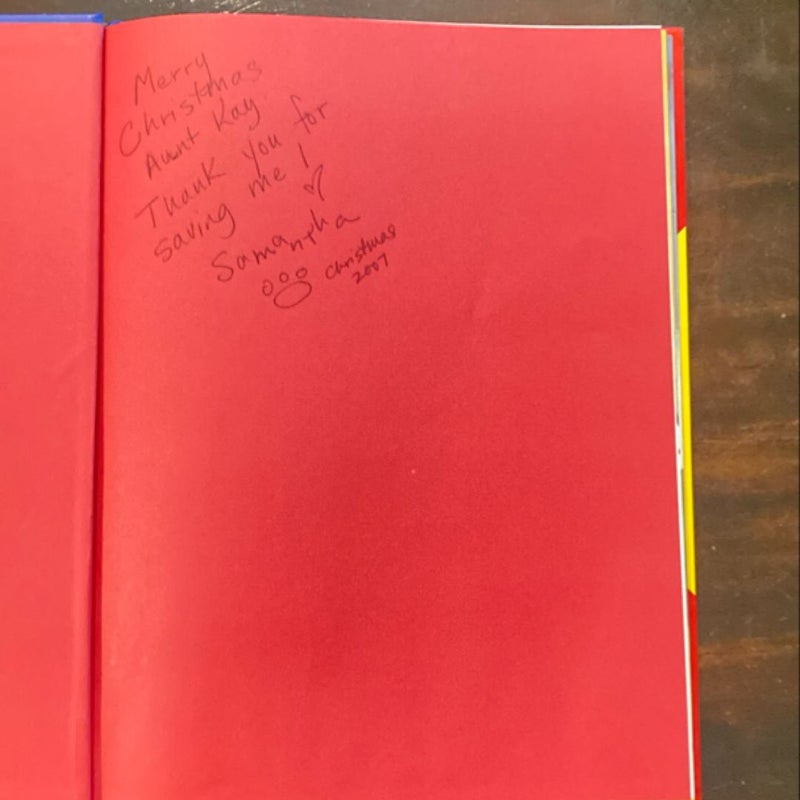 Merry
Christmas
Aunt Kay
Thank you for
saving me!
♡
Samantha
Christmas
2007